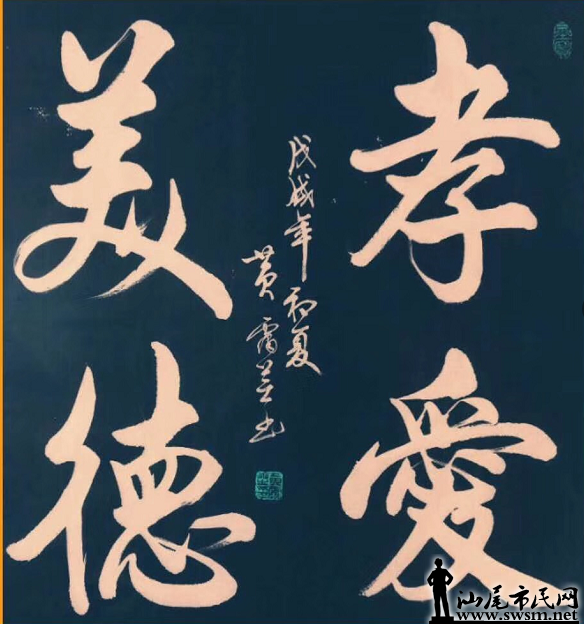 孝愛
美德
戊戌年初夏
黄霄芸书
汕尾市民网
www.swsm.net